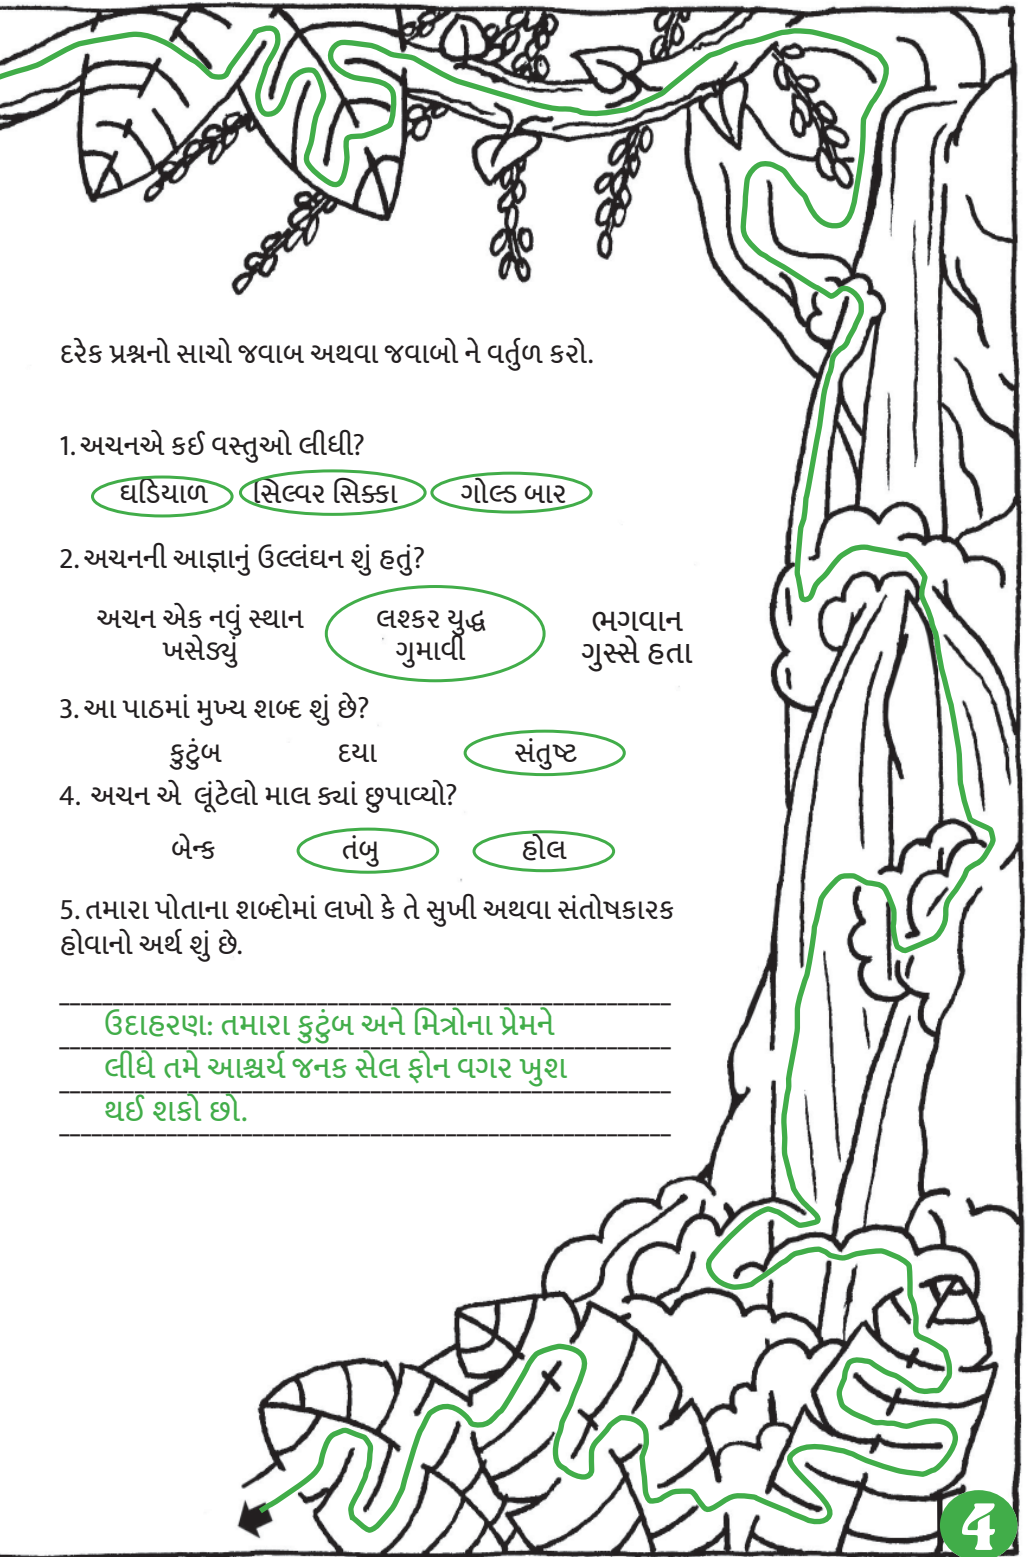 દરેક પ્રશ્નનો સાચો જવાબ અથવા જવાબો ને વર્તુળ કરો.
1. અચનએ કઈ વસ્તુઓ લીધી?
ઘડિયાળ સિલ્વર સિક્કા ગોલ્ડ બાર
2. અચનની આજ્ઞાનું ઉલ્લંઘન શું હતું?
અચન એક નવું સ્થાન ખસેડ્યું
લશ્કર યુદ્ધ ગુમાવી
ભગવાન ગુસ્સે હતા
3. આ પાઠમાં મુખ્ય શબ્દ શું છે?
કુટુંબ દયા સંતુષ્ટ
4. અચન એ લૂંટેલો માલ ક્યાં છુપાવ્યો?
બેન્ક તંબુ હોલ
5. તમારા પોતાના શબ્દોમાં લખો કે તે સુખી અથવા સંતોષકારક
હોવાનો અર્થ શું છે.
ઉદાહરણ: તમારા કુટુંબ અને મિત્રોના પ્રેમને
લીધે તમે આશ્ચર્ય જનક સેલ ફોન વગર ખુશ
થઈ શકો છો.
4